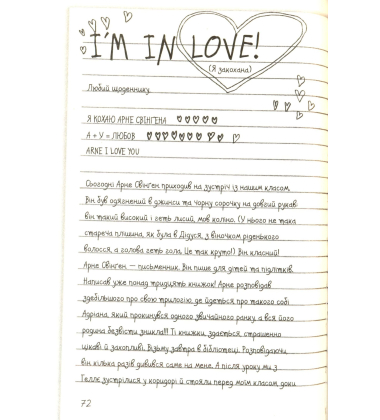 I'M IN LOVE!
(Я закохана)
Любий щоденнику
Я КОХАЮ АРНЕ СВІНГЕНА
А + У = ЛЮБОВ
ARNE I LOVE YOU
Сьогодні Арне Свінґен приходив на зустріч із нашим класом.
Він був одягнений в джинси та чорну сорочку на довгий рукав.
він такий високий і геть лисий, мов коліно. (У нього не така
стареча плішина, як була в Дідуся, з віночком ріденького
волосся, а голова геть гола. Це так круто!) Він класний!
Арне Свінґен — письменник. Він пише для дітей та підлітків.
Написав уже понад тридцять книжок! Арне розповідав
здебільшого про свою трилогію, де йдеться про такого собі
Адріана, який прокинувся одного звичайного ранку, а вся його
родина безвісти зникла!!! Ті книжки, здається, страшенно
цікаві й захопливі. Візьму завтра в бібліотеці. Розповідаючи,
він кілька разів дивився саме на мене. А після уроку ми з
Геллє зустрілися у коридорі й стояли перед моїм класом, доки
72